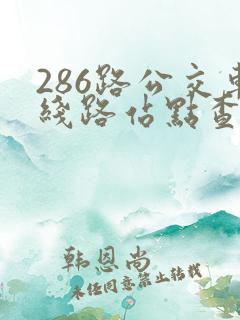 286路公交
綫路佔點查
韩恩尚
未经同意禁止转载